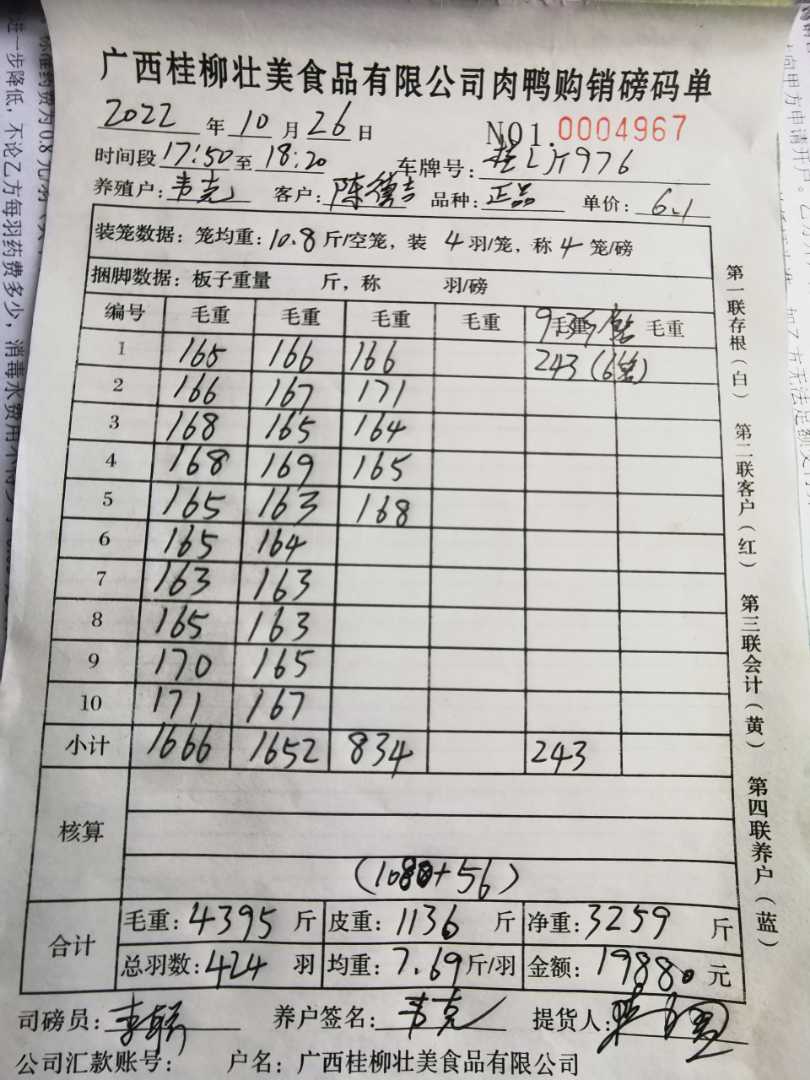 广西桂柳壮美食品有限公司肉鸭购销磅码单
2022 年 10 月 26 日 NO1. 0004967
时间段 17:50 至 18:20 车牌号: 976
养殖户: 韦克 客户: 陈德吉 品种: 正品 单价: 6.1
装笼数据: 笼均重: 10.8 斤/空笼, 装 4 羽/笼, 称 4 笼/磅
捆脚数据: 板子重量 斤, 称 羽/磅
编号 毛重 毛重 毛重 毛重 毛重 毛重
1 165 166 166 243 (6笼)
2 166 167 171
3 168 165 164
4 168 169 165
5 165 163 168
6 165 164
7 163 163
8 165 163
9 170 165
10 171 167
小计 1666 1652 834 243
核算
(1080+56)
合计
毛重: 4395 斤 皮重: 1136 斤 净重: 3259 斤
总羽数: 424 羽 均重: 7.69 斤/羽 金额: 19880 元
司磅员: 养户签名: 韦克 提货人:
公司汇款账号: 户名: 广西桂柳壮美食品有限公司
第一联存根(白) 第二联客户(红) 第三联会计(黄) 第四联养户(蓝)
进一步降低, 不论乙方每羽药费多少, 消毒水费用
标准药费为0.8元/羽